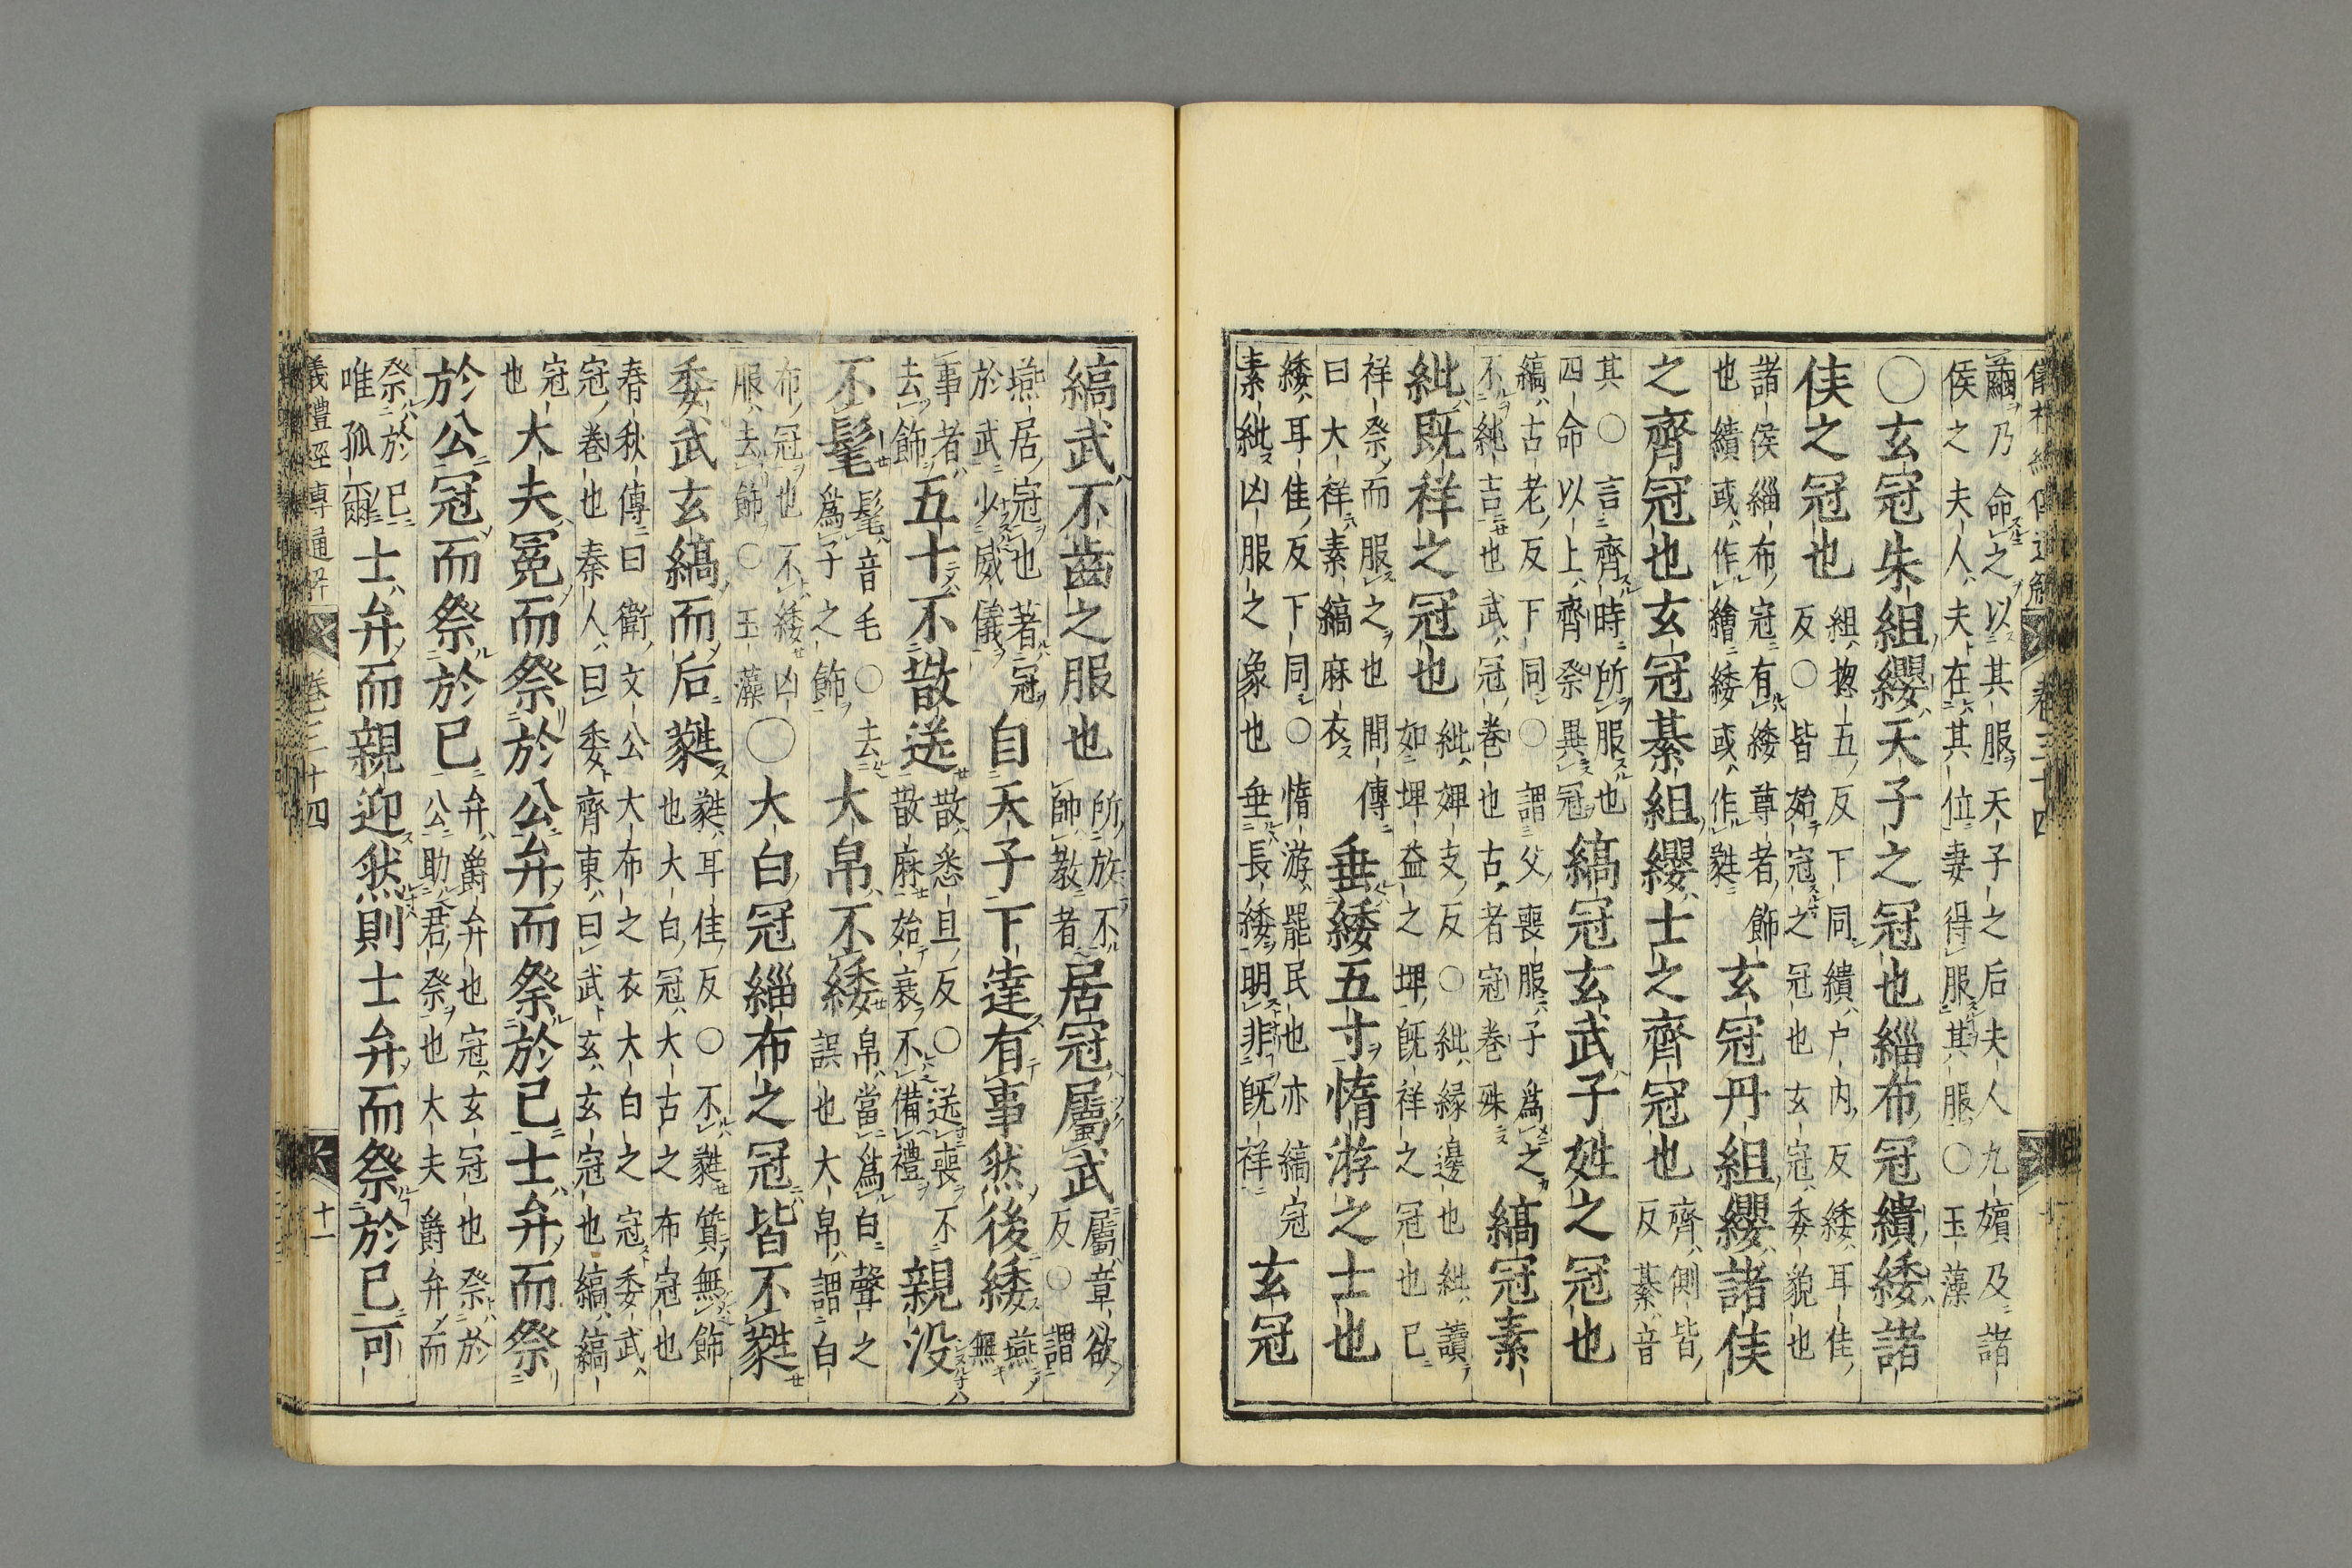 繭乃命之以其服天子之后夫人九嬪及諸
侯之夫人夫在其位妻得服其服〇玉藻
〇玄冠朱組纓天子之冠也緇布冠繢緌諸
侯之冠也組揔五反下同繢户内反緌耳佳反〇皆始冠之冠也玄冠委貌也
諸侯緇布冠有緌尊者飾也繢或作繪緌或作蕤玄冠丹組纓諸侯
之齊冠也玄冠綦組纓士之齊冠也齊側皆反綦音
其〇言齊時所服也四命以上齊祭異冠縞冠玄武子姓之冠也
縞古老反下同〇謂父喪服子爲之不純吉也武冠卷也古者冠卷殊縞冠素
紕既祥之冠也紕婢支反〇紕緣邊也紕讀如埤益之埤既祥之冠也已
祥祭而服之也間傳曰大祥素縞麻衣垂緌五寸惰游之士也
緌耳佳反下同〇惰游罷民也亦縞冠素紕凶服之象也垂長緌明非既祥玄冠
縞武不齒之服也所放不帥教者居冠屬武屬章欲反〇謂
燕居冠也著冠於武少威儀自天子下達有事然後緌燕無
事者去飾五十不散送散悉旦反〇送喪不散麻始衰不備禮親没
不髦髦音毛〇去爲子之飾大帛不緌帛當爲白聲之誤也大帛謂白
布冠也不緌凶服去飾〇玉藻〇大白冠緇布之冠皆不蕤
委武玄縞而后蕤蕤耳佳反〇不蕤質無飾也大白冠大古之布冠也
春秋傳曰衛文公大布之衣大白之冠委武冠卷也秦人曰委齊東曰武玄玄冠也縞縞
冠也大夫冕而祭於公弁而祭於己士弁而祭
於公冠而祭於己弁爵弁也冠玄冠也祭於公助君祭也大夫爵弁而
祭於己唯孤爾士弁而親迎然則士弁而祭於己可
儀禮經傳通解 卷三十四 十一